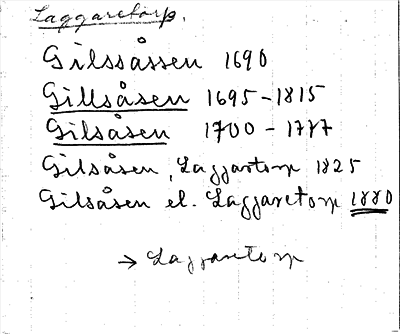 Laggaretorp.
Gilssåssen 1690
Gillsåsen 1695-1815
Gilsåsen 1700-1777
Gilsåsen, Laggartorp 1825
Gilsåsen el. Laggaretorp 1880
→ Laggaretorp